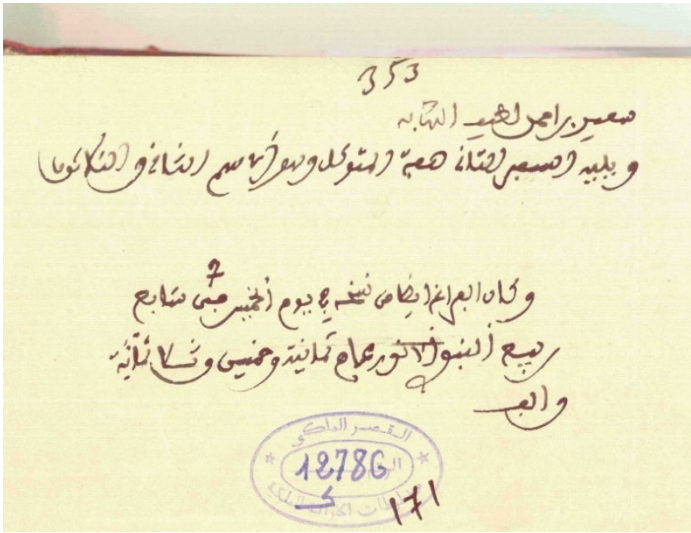 353
سعيد بن احمد العيد الكتابه
ويليه السفر الثاني صفة المتوكل وهو الاسم الثاني والثلاثون
7
وكان الفراغ ايضا من نسخه في يوم الخميس سابع
ربيع النبوي الانور عام ثمانية وخمسين وثلاثمائة
والف
القصر الملكي
12786
171